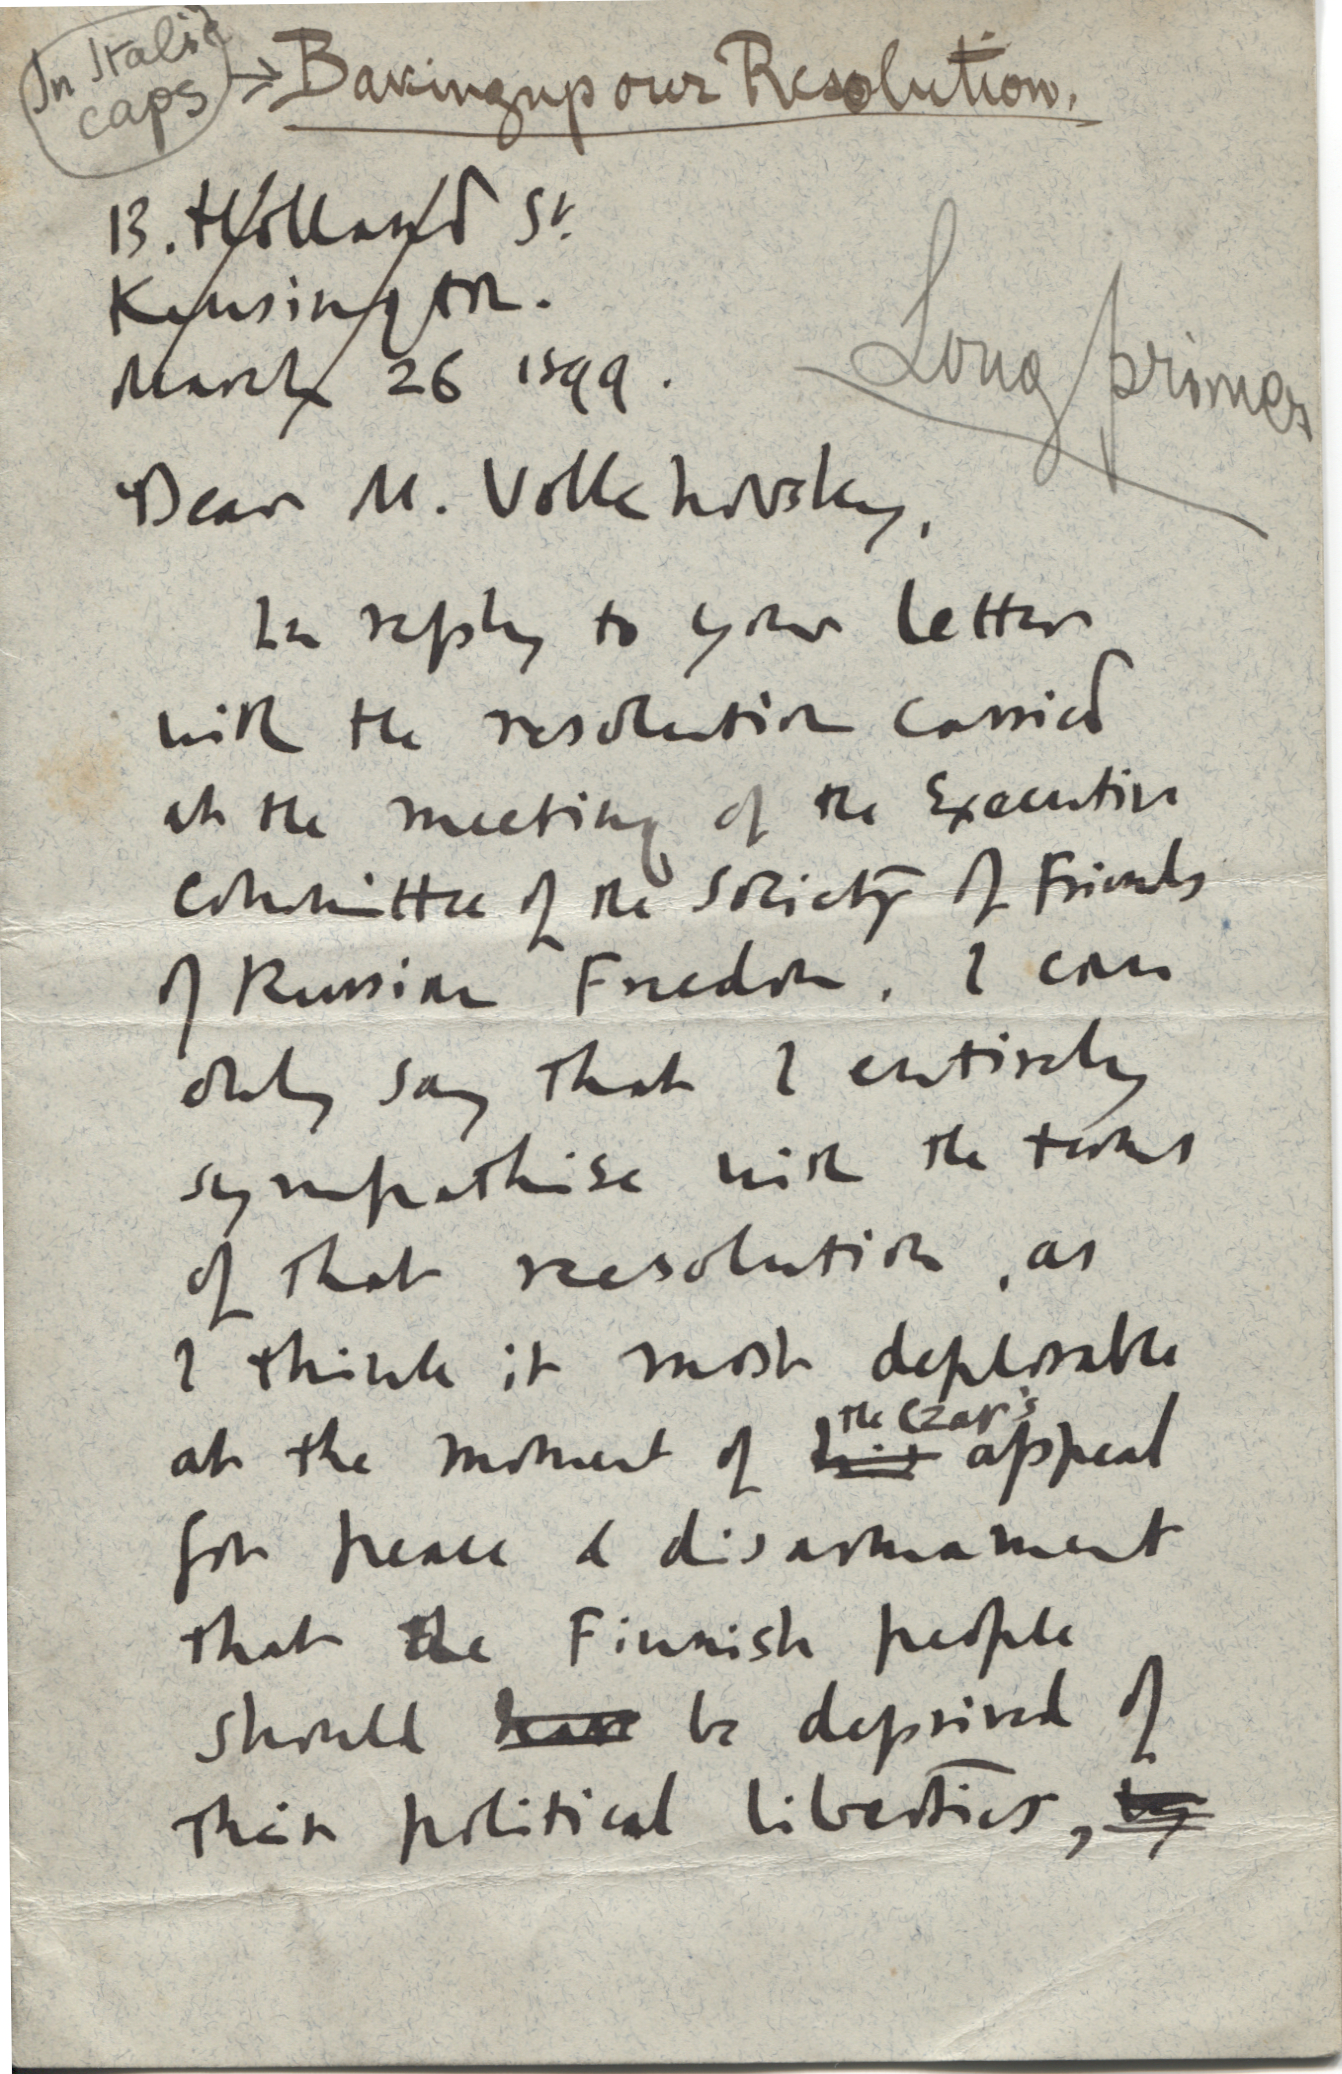 In Italic
caps
→ Baking up our Resolution.
13. Holland St.
Kensington.
Long primer
March 26 1899.
Dear M. Volkhovsky,
In reply to your letter
with the resolution carried
at the meeting of the Executive
Committee of the Society of Friends
of Russian Freedom, I can
only say that I entirely
sympathise with the terms
of that resolution, as
I think it most deplorable
the Czar's
at the moment of his appeal
for peace & disarmament
that the Finnish people
should have be deprived of
their political liberties, by